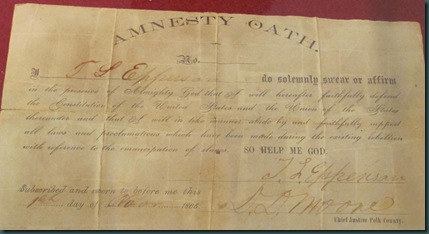 AMNESTY OATH.
No.
I T L Epperson do solemnly swear or affirm
in the presence of Almighty God that I will hereafter faithfully defend
the Constitution of the United States and the Union of the States
thereunder and that I will in like manner abide by and faithfully support
all laws and proclamations which have been made during the existing rebellion
with reference to the emancipation of slaves. SO HELP ME GOD.
T. L. Epperson
Subscribed and sworn to before me this
day of 1865
Moore
Chief Justice Polk County